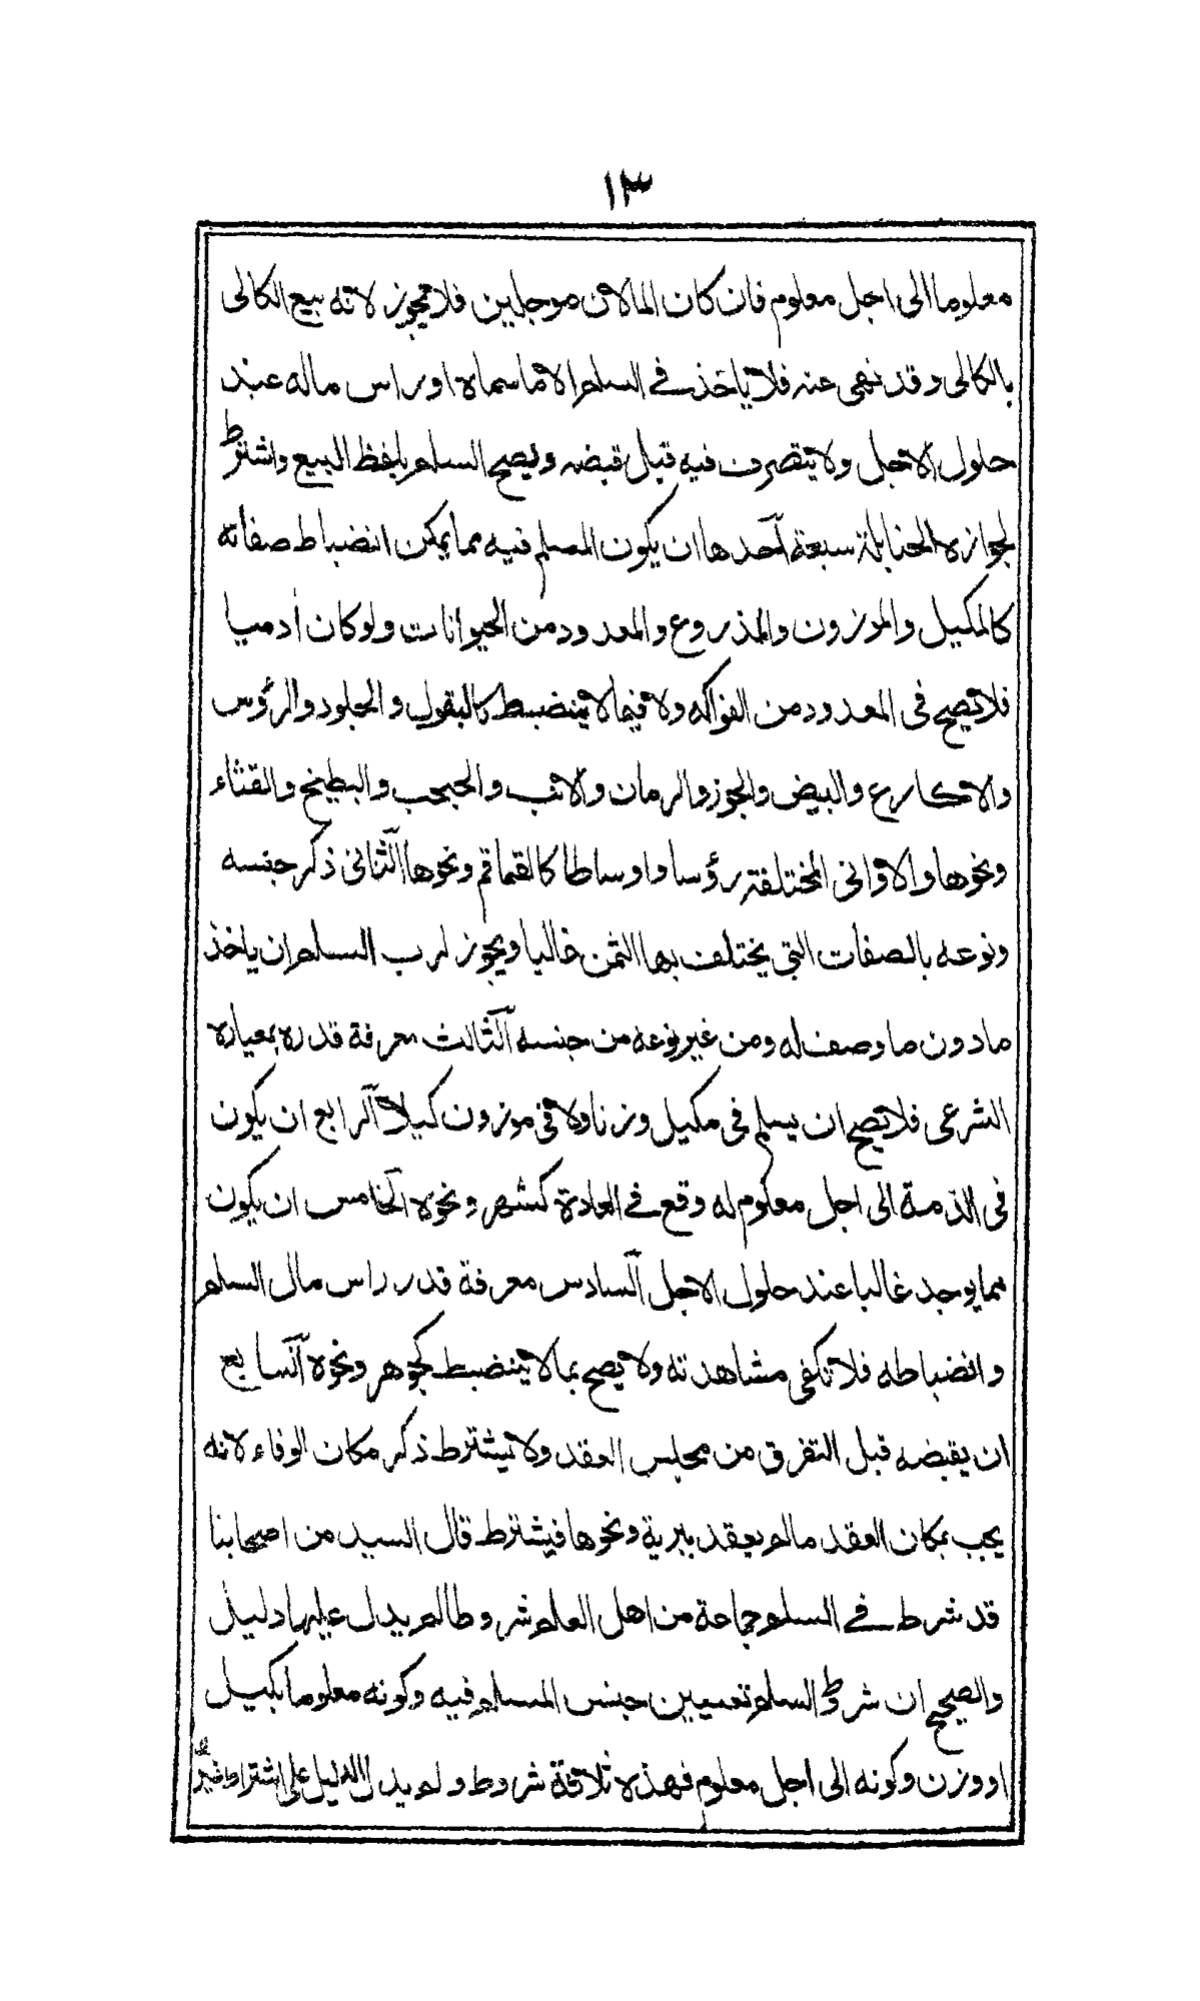 ١٣
معلوما الى اجل معلوم فان كان المالان موجلين فلا يجوز لانه بيع الكالى
بالكالى وقد نهى عنه فلا ياخذ في السلم الا ما سماه او راس ماله عند
حلول الاجل ولا يتصرف فيه قبل قبضه ويصح السلم بلفظ البيع واشترط
لجوازه الحنابلة سبعة احدها ان يكون المسلم فيه مما يمكن انضباط صفاته
كالمكيل والموزون والمذروع والمعدود من الحيوانات ولو كان ادميا
فلا تصح فى المعدود من الفواكه ولا فيما لا ينضبط كالبقول والجلود والرؤس
والاكارع والبيض والجوز والرمان والانب والحبحب والبطيخ والقثاء
ونحوها والاوانى المختلفة رؤسا واوساطا كالقماقم ونحوها الثانى ذكر جنسه
ونوعه بالصفات التي يختلف بها الثمن غالبا ويجوز لرب السلم ان ياخذ
ما دون ما وصف له ومن غير نوعه من جنسه الثالث معرفة قدره بمعياره
الشرعى فلا تصح ان يسلم فى مكيل وزنا ولا فى موزون كيلا الرابع ان يكون
فى الذمة الى اجل معلوم له وقع في العادة كشهر ونحوه الخامس ان يكون
مما يوجد غالبا عند حلول الاجل السادس معرفة قدر راس مال السلم
وانضباطه فلا تكفى مشاهدته ولا يصح بما لا ينضبط كجوهر ونحوه السابع
ان يقبضه قبل التفرق من مجلس العقد ولا يشترط ذكر مكان الوفاء لانه
يجب بمكان العقد ما لم يعقد ببرية ونحوها فيشترط قال السيد من اصحابنا
قد شرط في السلم جماعة من اهل العلم شروطا لم يدل عليها دليل
والصحيح ان شروط السلم تعيين جنس المسلم فيه وكونه معلوما بكيل
او وزن وكونه الى اجل معلوم فهذه ثلاثة شروط ولم يدل الدليل على اشتراط غيرها